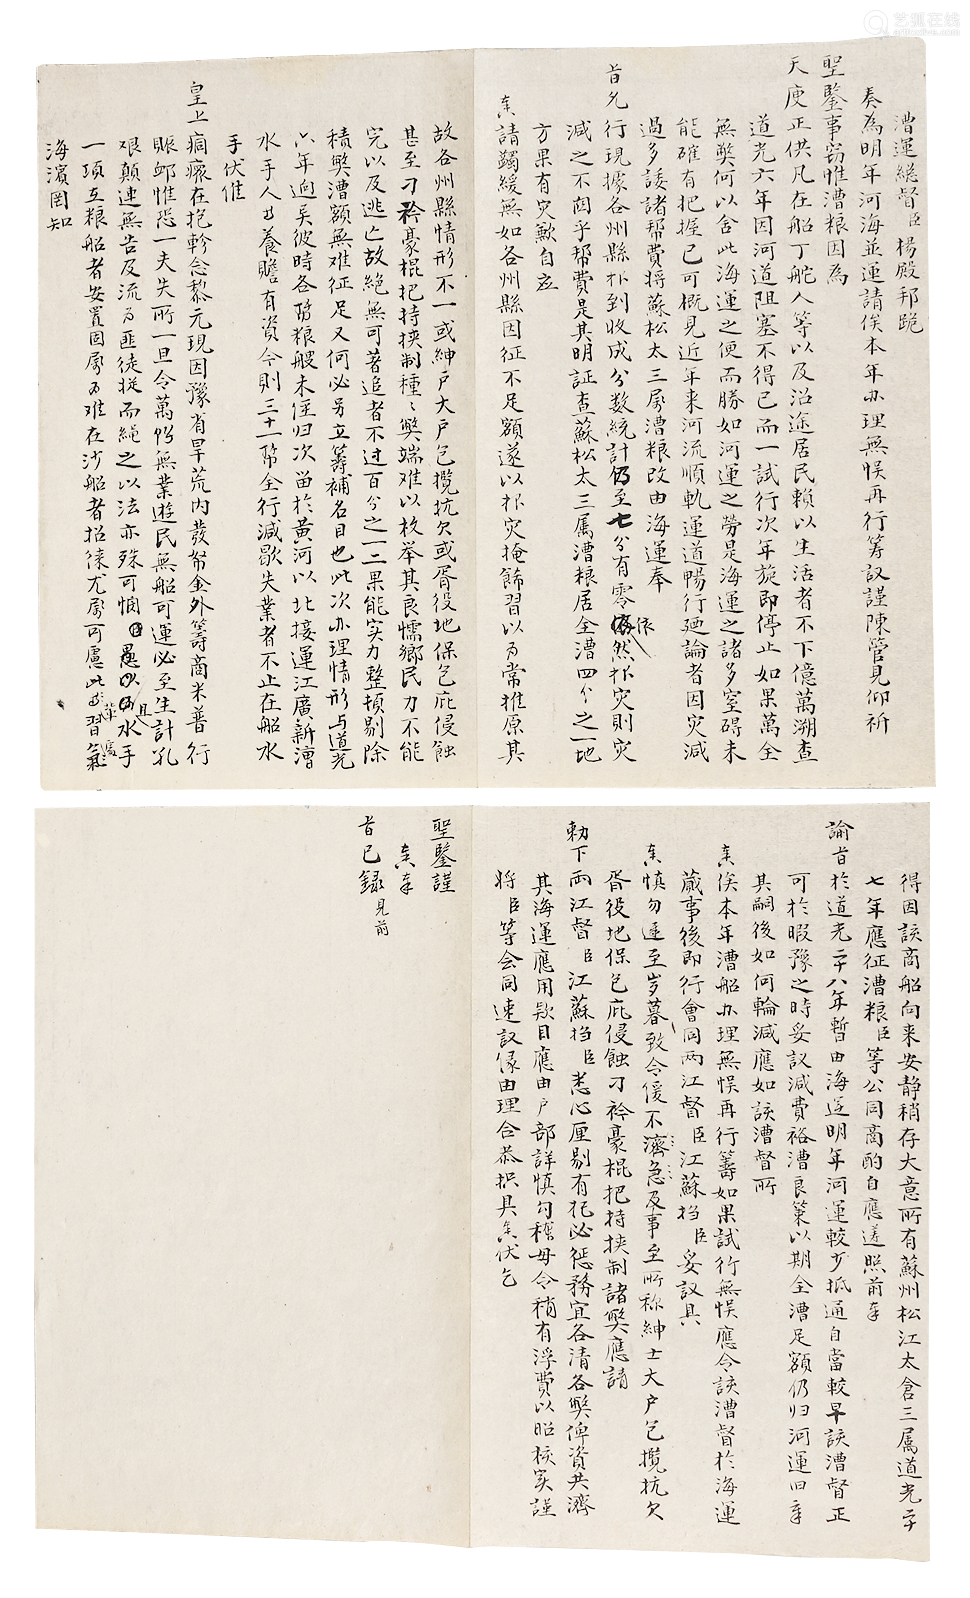 漕運總督臣楊殿邦跪
奏為明年河海並運請俟本年办理無悮再行筹议謹陳管見仰祈
聖鑒事窃惟漕粮因為
天庾正供凡在船丁舵人等以及沿途居民賴以生活者不下億萬溯查
道光六年因河道阻塞不得已而一試行次年旋即停止如果萬全
無獘何以舍此海運之便而勝如河運之勞是海運之諸多窒碍未
能確有把握已可概見近年来河流順軌運道暢行廼論者因灾減
過多諉諸帮費將蘇松太三屬漕粮改由海運奉
旨允行現據各州縣报到收成分数統計仍至七分有零依然报灾則灾
減之不囿乎帮費是其明証查蘇松太三属漕粮居全漕四分之一地
方果有灾歉自应
奏請蠲緩無如各州縣因征不足額遂以报灾掩飾習以为常推原其
故各州縣情形不一或紳户大户包攬抗欠或胥役地保包庇侵蝕
甚至刁衿豪棍把持挟制種〻獘端难以枚举其良懦鄉民力不能
完以及逃亡故絶無可著追者不过百分之一二果能实力整頓剔除
積獘漕額無难征足又何必另立籌補名目也此次办理情形与道光
六年迥異彼時各帮粮艘未徃归次留於黄河以北接運江廣新漕
水手人等養贍有資今則三十一帮全行減歇失業者不止在船水
手伏惟
皇上痌瘝在抱軫念黎元現因豫省旱荒内發帑金外籌商米普行
賑邺惟恐一夫失所一旦令萬幫無業遊民無船可運必至生計孔
艰顛連無告及流为匪徒從而繩之以法亦殊可悯且愚以为水手
一項在粮船者安置固属为难在沙船者招徕尤属可慮此輩習氣
海濱罔知
得因該商船向来安静稍存大意所有蘇州松江太倉三属道光二十
七年應征漕粮臣等公同商酌自應遵照前奉
諭旨於道光二十八年暫由海运明年河運較少抵通自當較早該漕督正
可於暇豫之時妥议減費裕漕良策以期全漕足額仍归河運旧章
其嗣後如何輪減應如該漕督所
奏俟本年漕船办理無悮再行籌如果試行無悮應令該漕督於海運
蕆事後即行會同两江督臣江蘇撫臣妥议具
奏慎勿遲至岁暮致令缓不濟急及事至所称紳士大户包攬抗欠
胥役地保包庇侵蝕刁衿豪棍把持挟制諸獘應請
勅下两江督臣江蘇撫臣悉心厘剔有犯必惩務宜各清各獘俾資共濟
其海運應用款目應由户部詳慎勾稽毋令稍有浮費以昭核实謹
將臣等会同速议缘由理合恭摺具奏伏乞
聖鑒謹
奏奉
旨已録見前